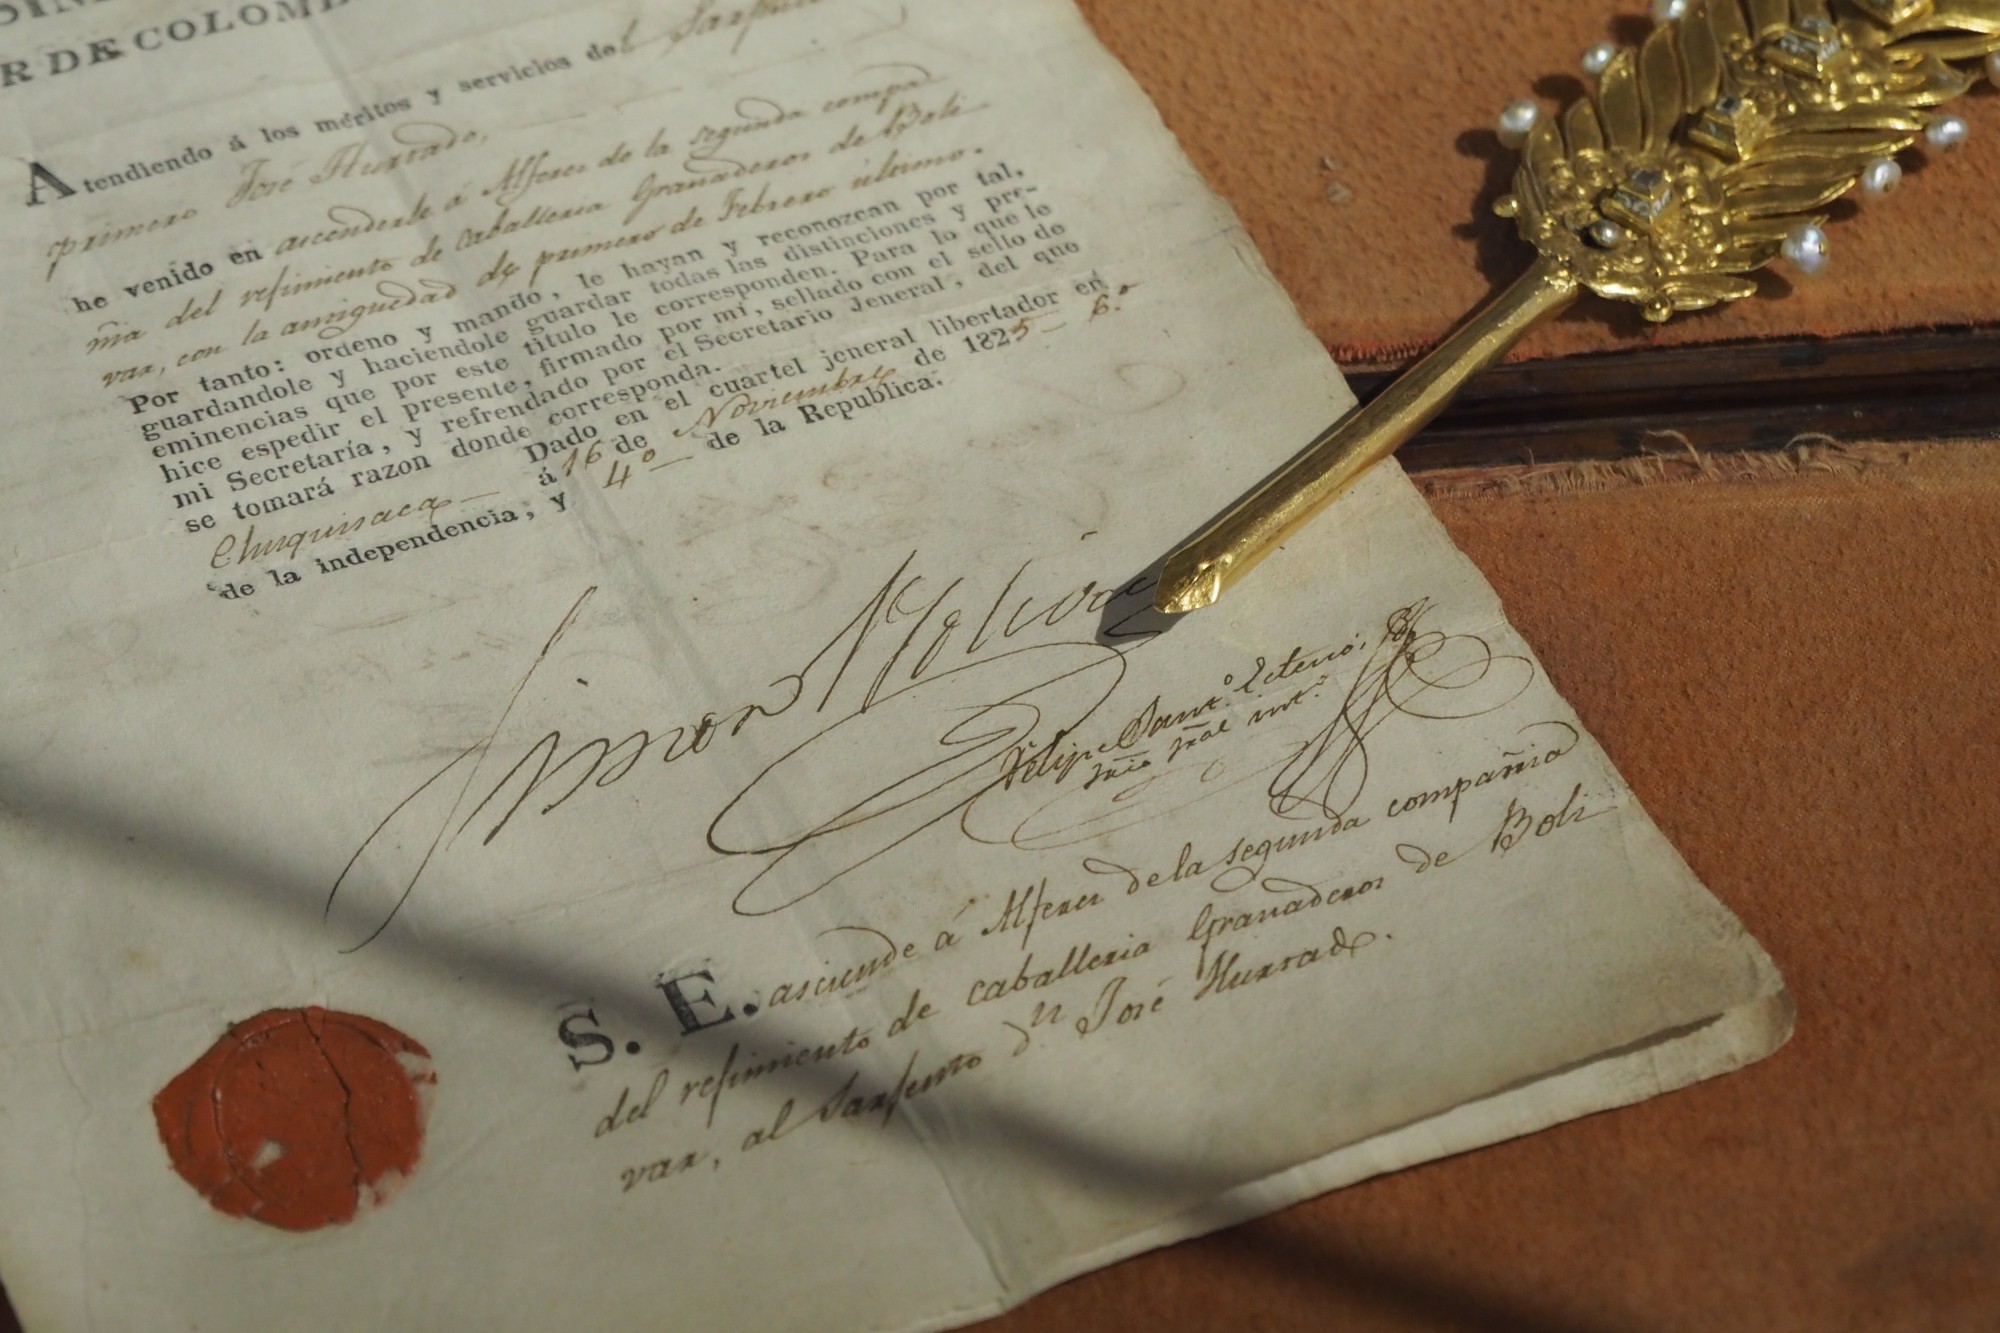 R DE COLOM
Atendiendo á los méritos y servicios del Sargento
primero José Hurtado,
he venido en ascenderle á Alferes de la segunda compa
ñia del regimiento de caballeria Granaderos de Boli
var, con la antiguedad de primero de Febrero último.
Por tanto: ordeno y mando, le hayan y reconozcan por tal,
guardandole y haciendole guardar todas las distinciones y pre-
eminencias que por este titulo le corresponden. Para lo que le
hice espedir el presente, firmado por mí, sellado con el sello de
mi Secretaría, y refrendado por el Secretario Jeneral, del que
se tomará razon donde corresponda.
Dado en el cuartel jeneral libertador en
Chuquisaca á 16 de Noviembre de 1825 – 6.o
de la independencia, y 4o de la Republica.
Simon Bolivar
Felipe Sant.o Estenós
S. E. asciende á Alferes de la segunda compañia
del regimiento de caballeria Granaderos de Boli
var, al Sargento dn José Hurtado.